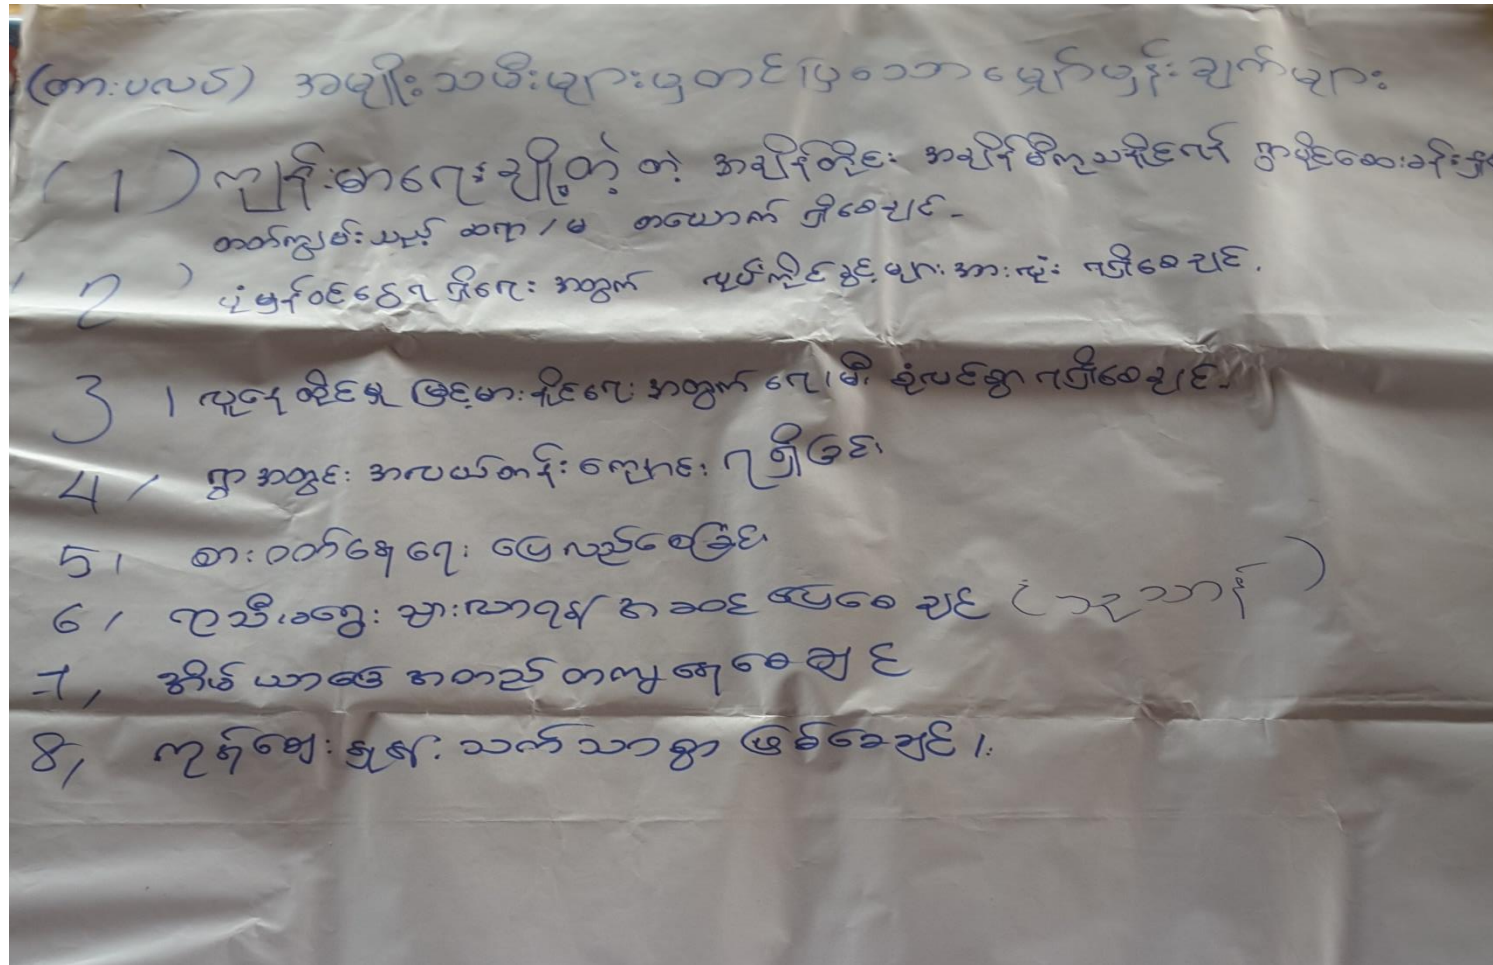 (တားပလပ်) အမျိုးသမီးများမှတင်ပြသောမျှော်မှန်းချက်များ
(1) ကျန်းမာရေးချို့တဲ့ တဲ့ အချိန်တိုင်း အချိန်မီကုသနိုင်ရန် ရွာပိုင်ဆေးခန်းနှင့်
တတ်ကျွမ်းသည့် ဆရာ/မ တယောက် ရှိစေချင်-
2) ပုံမှန်ဝင်ငွေရရှိရေး အတွက် လုပ်ကိုင်ခွင့်များအားလုံး ရရှိစေချင်.
3 ၊ လူနေထိုင်မှု မြင့်မားနိုင်ရေး အတွက် ရေ၊မီး စုံလင်စွာ ရရှိစေချင်.
4 / ရွာအတွင်း အလယ်တန်းကျောင်း ရရှိခြင်း
5၊ စားဝတ်နေရေး ပြေလည်စေခြင်း
6 / ရာသီမရွေး သွားလာရန် အဆင်ပြေစေချင်
7, အိမ်ယာမြေ အတည်တကျနေစေချင်
8, ကုန်ဈေးနှုန်း သက်သာစွာ ဖြစ်စေချင်၊း